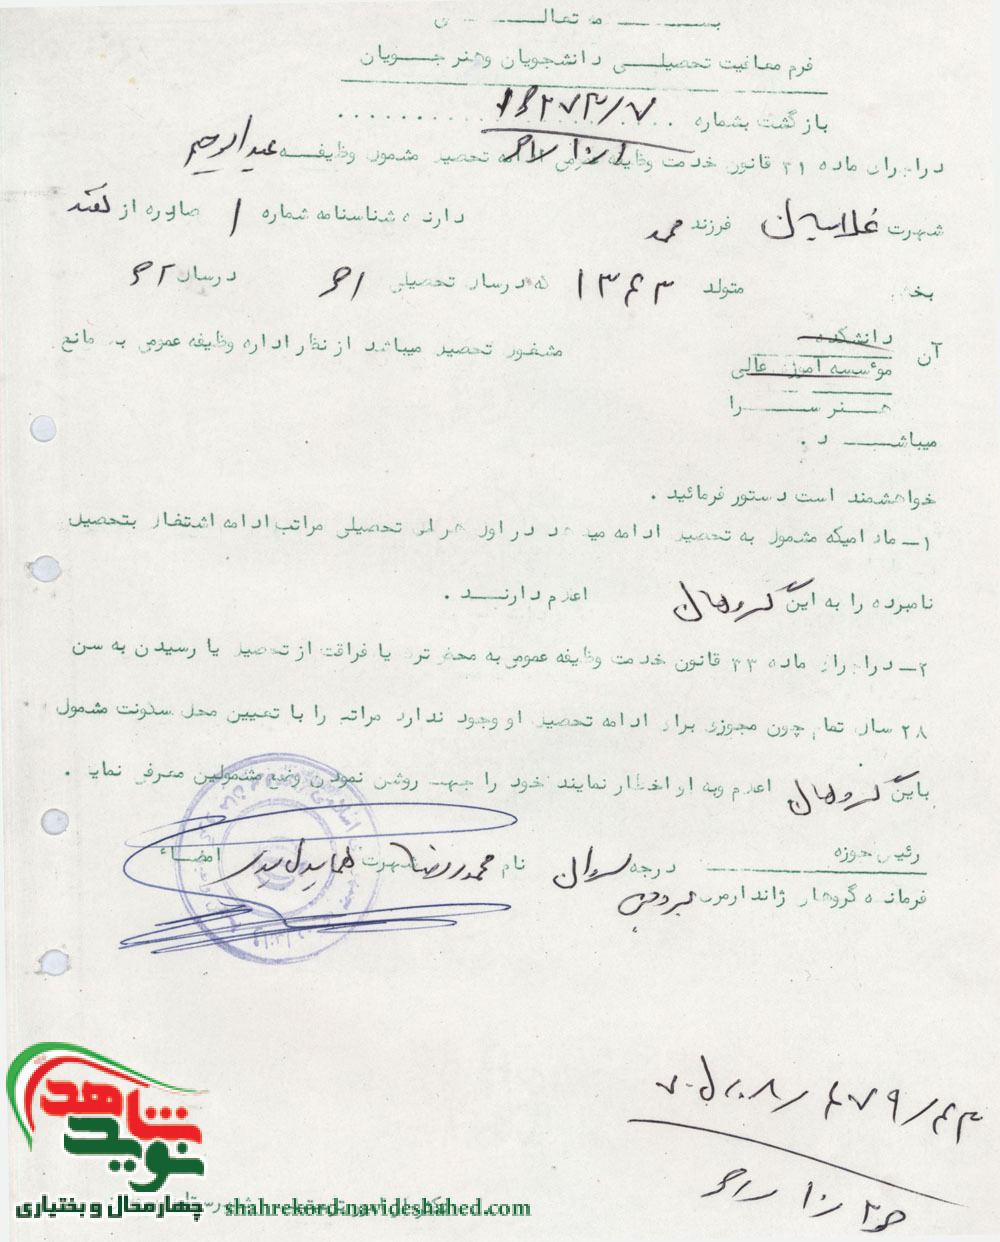 بسمه تعالی
فرم معافیت تحصیلی دانشجویان وهنرجویان
بازگشت بشماره
دراجرای ماده ۳۱ قانون خدمت وظیفه عمومی ادامه تحصیل مشمول وظیفه عبدالرحیم
شهرت غلامیان فرزند محمد دارنده شناسنامه شماره ۱ صادره از
بخش متولد ۱۳۴۳ که درسال تحصیلی درسال
آن دانشکده
موسسه آموزش عالی مشغول تحصیل میباشد از نظر اداره وظیفه عمومی بلا مانع
هنرسرا
میباشد .
خواهشمند است دستور فرمائید .
۱- مادامیکه مشمول به تحصیل ادامه میدهد در اول هر سال تحصیلی مراتب ادامه اشتغال بتحصیل
نامبرده را به این گروهان اعلام دارند .
۲- دراجرای ماده ۳۳ قانون خدمت وظیفه عمومی به محض ترک یا فراغت از تحصیل یا رسیدن به سن
۲۸ سال تمام چون مجوزی برای ادامه تحصیل او وجود ندارد مراتب را با تعیین محل سکونت مشمول
باین گروهان اعلام و به او اخطار نمایند خود را جهت روشن نمودن وضع مشمولین معرفی نماید .
رئیس حوزه درجه ستوان نام محمدرضا شهرت امضاء
فرمانده گروهان ژاندارمری بروجن
شاهد
نوید
چهارمحال و بختیاری
shahrekord.navideshahed.com